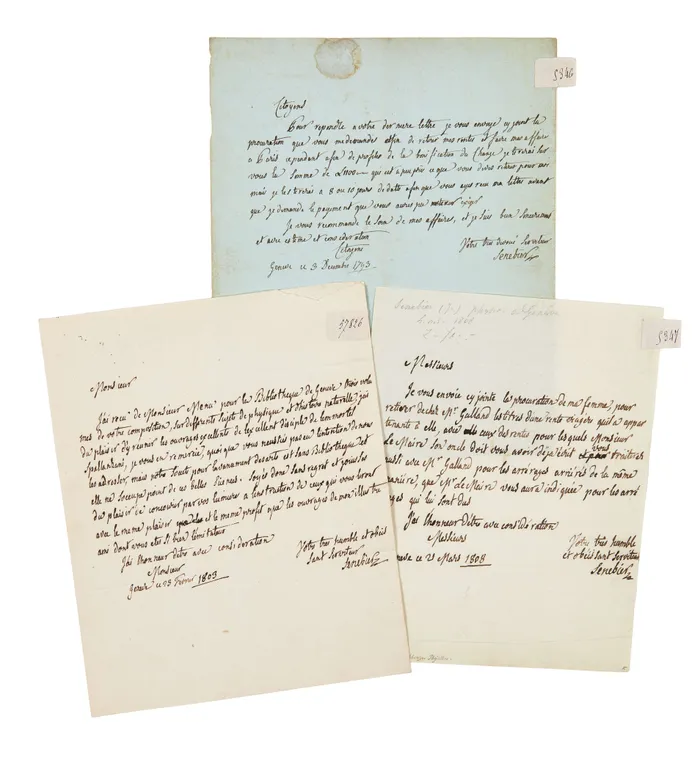 5346
Citoyens
Pour repondre a votre derniere lettre je vous envoye cy joint la
procuration que vous me demandes affin de retirer mes rentes et faire mes affaires
a Paris cependant afin de profiter de la bonification du Change je tirerai sur
vous la somme de £1100 qui est a peu près ce que vous devés retirer pour moi
mais je les tirerai a 8 ou 10 jours de date afin que vous ayes recu ma lettre avant
que je demande le payement que vous aures pu exiger
Je vous recommande le soin de mes affaires, et je suis bien sincerement
et avec estime et consideration
Citoyens
Votre tres devoué Serviteur
Senebier
Geneve ce 3 Decembre 1793
37826
Monsieur
J'ai recu de Monsieur Menu pour la Bibliotheque de Geneve trois volu
mes de votre composition, sur differents sujets de physique et d'histoire naturelle, j'ai
du plaisir d'y reunir les ouvrages excellents de l'excellent disciple de l'immortel
Spallanzani, je vous en remercie, quoi que vous n'eussiés pas eu l'intention de nous
les adresser, mais notre Societé pour l'avancement des arts est sans Bibliotheque et
elle ne s'occupe point de ces belles sciences. Soyés donc sans regret et jouissés
du plaisir de concourir par vos lumieres a l'instruction de ceux qui vous liront
avec le meme plaisir et le meme profit que les ouvrages de mon illustre
ami dont vous etes si bien l'imitateur
J'ai l'honneur d'etre avec consideration
Monsieur
Votre tres humble et obeis
sant Serviteur
Senebier
Geneve ce 23 Fevrier 1803
5347
Senebier (J.)
Messieurs
Je vous envoie cy jointe la procuration de ma femme, pour
retirer de chez Mr. Gallard les titres d'une rente viagere qui a appar
tenu a elle, avec ceux des rentes pour lesquels Monsieur
Le Maire son oncle doit vous avoir déja écrit vous traiterez
aussi avec Mr. Gallard pour les arrérages arriérés de la même
maniere, que Mr. Le Maire vous aura indiquée pour les arré
rages qui lui sont dus
J'ai l'honneur d'etre avec consideration
Messieurs
Votre très humble
et obéissant serviteur
Senebier
ce 21 Mars 1808